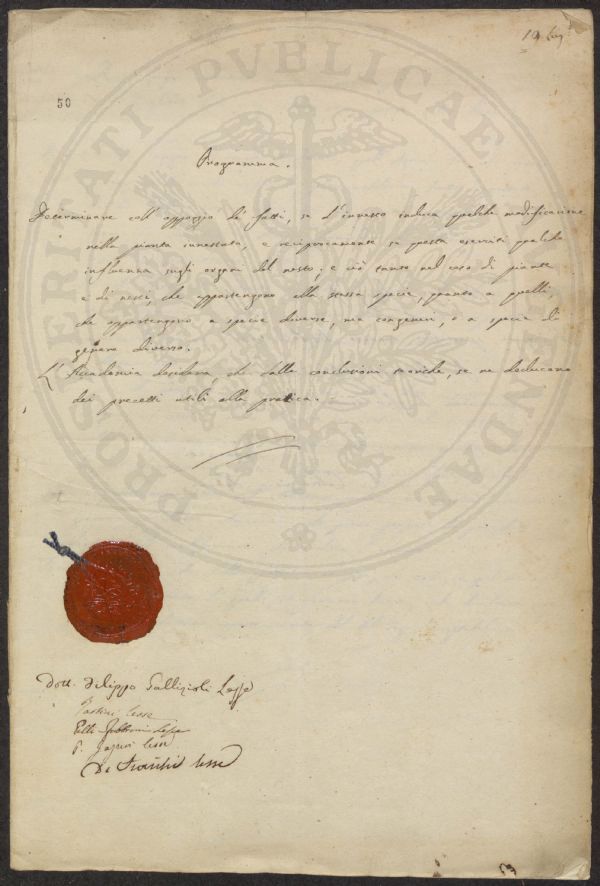 50
Programma.
Determinare coll' appoggio de' fatti, se l' innesto induca qualche modificazione
nella pianta innestata, e reciprocamente se questa eserciti qualche
influenza sugli organi del nesto; e ciò tanto nel caso di piante
e di nesti, che appartengono alla stessa specie, quanto a quelli,
che appartengono a specie diverse, ma congeneri, o a specie di
genere diverso.
L' Accademia desidera, che dalle conclusioni teoriche, se ne deducano
dei precetti utili alla pratica.
Dott. Filippo Gallizioli Lesse
lesse
P. lesse
lesse
PROSPERITATI PVBLICAE